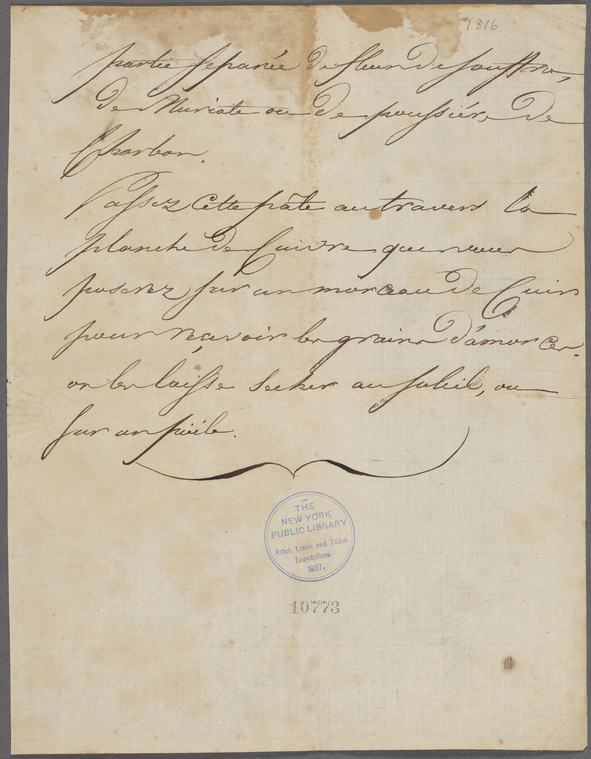 1816
partie separée de fleur de souffre,
de Muriate ou de poussière de
Charbon.
Passez cette pâte au travers la
planche de Cuivre que vous
poserez sur un morceau de Cuir
pour recevoir les grains d'amorce.
on les laisse secher au soleil, ou
sur un poële.
THE
NEW YORK
PUBLIC LIBRARY
Astor, Lenox and Tilden
Foundations.
1897.
10773